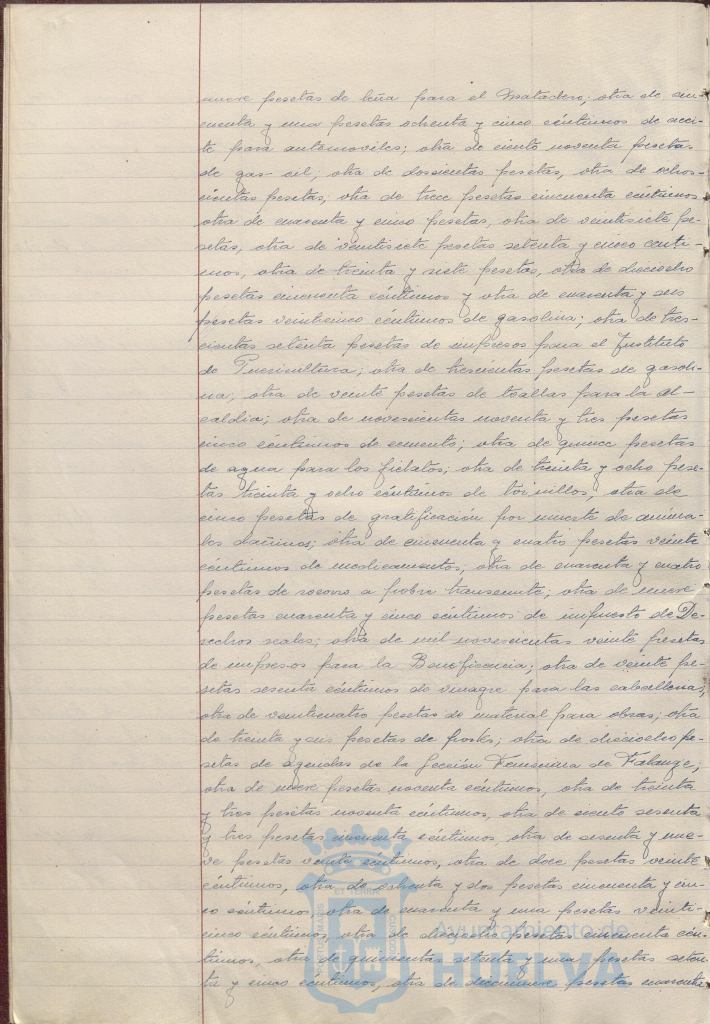 nueve pesetas de leña para el Matadero; otra de cin-
cuenta y una pesetas ochenta y cinco céntimos de acei-
te para automoviles; otra de ciento noventa pesetas
de gas-oil; otra de doscientas pesetas, otra de ochos-
cientas pesetas, otra de trece pesetas cincuenta céntimos
otra de cuarenta y cinco pesetas, otra de veintisiete pe-
setas, otra de veintisiete pesetas setenta y cinco cénti-
mos, otra de treinta y siete pesetas, otra de dieciocho
pesetas cincuenta céntimos y otra de cuarenta y seis
pesetas veinticinco céntimos de gasolina; otra de tres-
cientas setenta pesetas de impresos para el Instituto
de Puericultura; otra de trescientas pesetas de gasoli-
na; otra de veinte pesetas de toallas para la al-
caldia; otra de novescientas noventa y tres pesetas
cinco céntimos de cemento; otra de quince pesetas
de agua para los fielatos; otra de treinta y ocho pese-
tas treinta y ocho céntimos de tornillos, otra de
cinco pesetas de gratificación por muerte de anima-
les dañinos; otra de cincuenta y cuatro pesetas veinte
céntimos de medicamentos; otra de cuarenta y cuatro
pesetas de socorro a pobre transeunte; otra de nueve
pesetas cuarenta y cinco céntimos de impuesto de De-
rechos reales; otra de mil novescientas veinte pesetas
de impresos para la Beneficencia; otra de veinte pe-
setas sesenta céntimos de vinagre para las caballerias,
otra de veinticuatro pesetas de material para obras; otra
de treinta y seis pesetas de portes; otra de dieciocho pe-
setas de agendas de la Sección Femenina de Falange;
otra de nueve pesetas noventa céntimos, otra de treinta
y tres pesetas noventa céntimos, otra de ciento sesenta
y tres pesetas cincuenta céntimos, otra de sesenta y nue-
ve pesetas veinte céntimos, otra de doce pesetas veinte
céntimos, otra de ochenta y dos pesetas cincuenta y cin-
co céntimos otra de cuarenta y una pesetas veinti-
cinco céntimos, otra de dieciocho pesetas cincuenta cén-
timos, otra de quinientas setenta y una pesetas seten-
ta y cinco céntimos, otra de diecinueve pesetas cuarenta
Ayuntamiento de
HUELVA